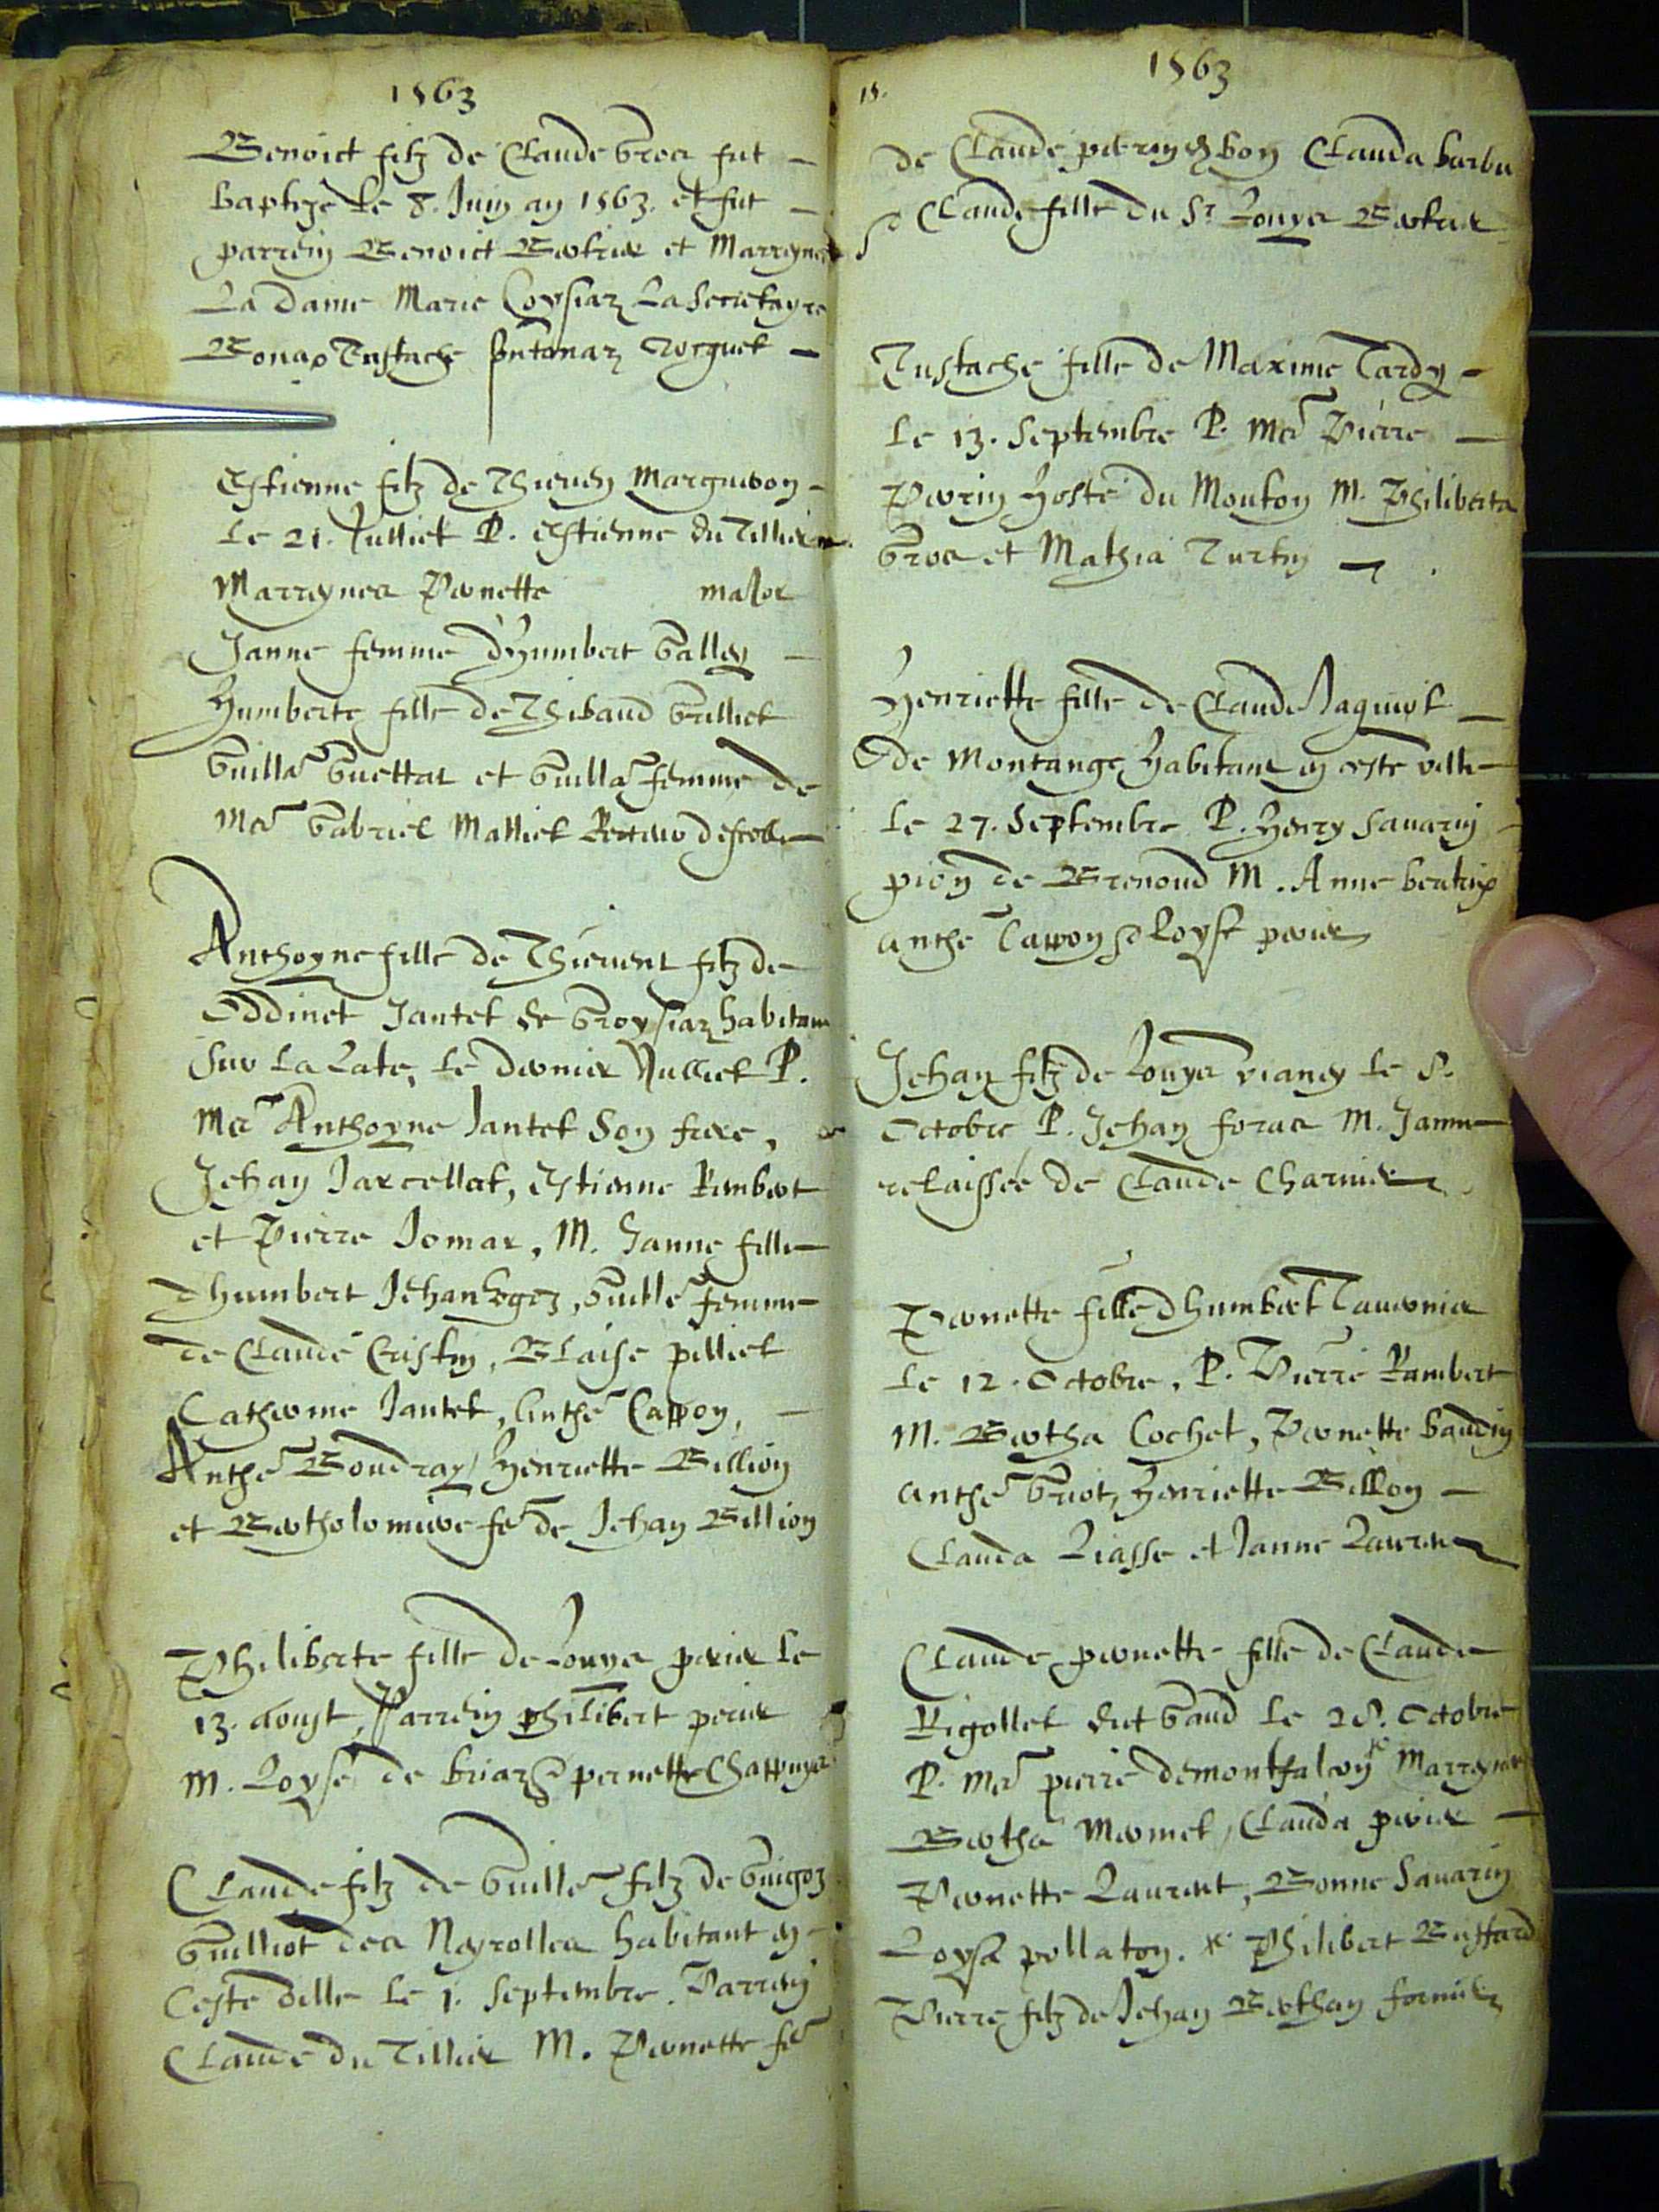 1563
Benoict filz de Claude Gros fut
baptizé le 8. Juin an 1563. et fut
parrein Benoict Bertrier et Marreynes
La dame Marie Coysiaz La Secretayre
Eustache
Estienne filz de Thieven
Le 21. Julliet P. Estienne du Tillier
Marreynes Pernette major
Janne femme d'Humbert Galley
Humberte fille de Thibaud Grilliet
Guilla Guettat et Guilla femme de
Mre Gabriel Malliet Recteur descole
Anthoyne fille de Thievent filz de
Oddinet Jantet de Groysiaz habitant
Sur La Late, Le dernier Julliet P.
Mre Anthoyne Jantet Son frere,
Jehan Jarcellat, Estienne Rambert
et Pierre Jomar, M. Janne fille
d'humbert Jehan, Guille femme
de Claude Cristin, Blaise pilliet
Catherine Jantet, Anthe Cappon,
Anthe Boudray, Henriette Billion
et Bertholomive fe de Jehan Billion
Philiberte fille de Louys perier le
13. Aoust, Parrein philibert perier
M. Loyse de briaz & pernette Chappuys
Claude filz de Guille filz de Guigoz
Guilliot des Neyrolles habitant en
Ceste ville le 1. Septembre. Parrein
Claude du Tillier M. Pernette fe
15.
1563
de Claude Clauda barbu
& Claude fille du Sr Louys Bertrier
Eustache fille de Maxime Tardy
Le 13. Septembre P. Mre Pierre
Perrin hoste du Mouton M. Philiberta
Gros et Mathia Turtin
Henriette fille de Claude Jaquiot
de Montange habitant en ceste ville
Le 27. Septembre P. Henry Savarin
prieur de Brenoud M. Anne beatrix
Anthe Cappon & Loyse perier
Jehan filz de Louys vianey le 8.
Octobre P. Jehan foras M. Janne
relaissée de Claude Charnier
Pernette fille d'humbert Tavernier
Le 12. Octobre, P. Pierre Rambert
M. Bertha Cochet, Pernette baudin
Anthe Griot, Henriette Billon
Clauda Liasse et Janne Laurent
Claude pernette fille de Claude
Rigollet dict Gaud le 28. Octobre
P. Mre pierre demontfalcon * Marreynes
Bertha Mermet, Clauda perier
Pernette Laurent, Bonne Savarin
Loyse pollaton. * Philibert Buffard
Pierre filz de Jehan Berthan fornier